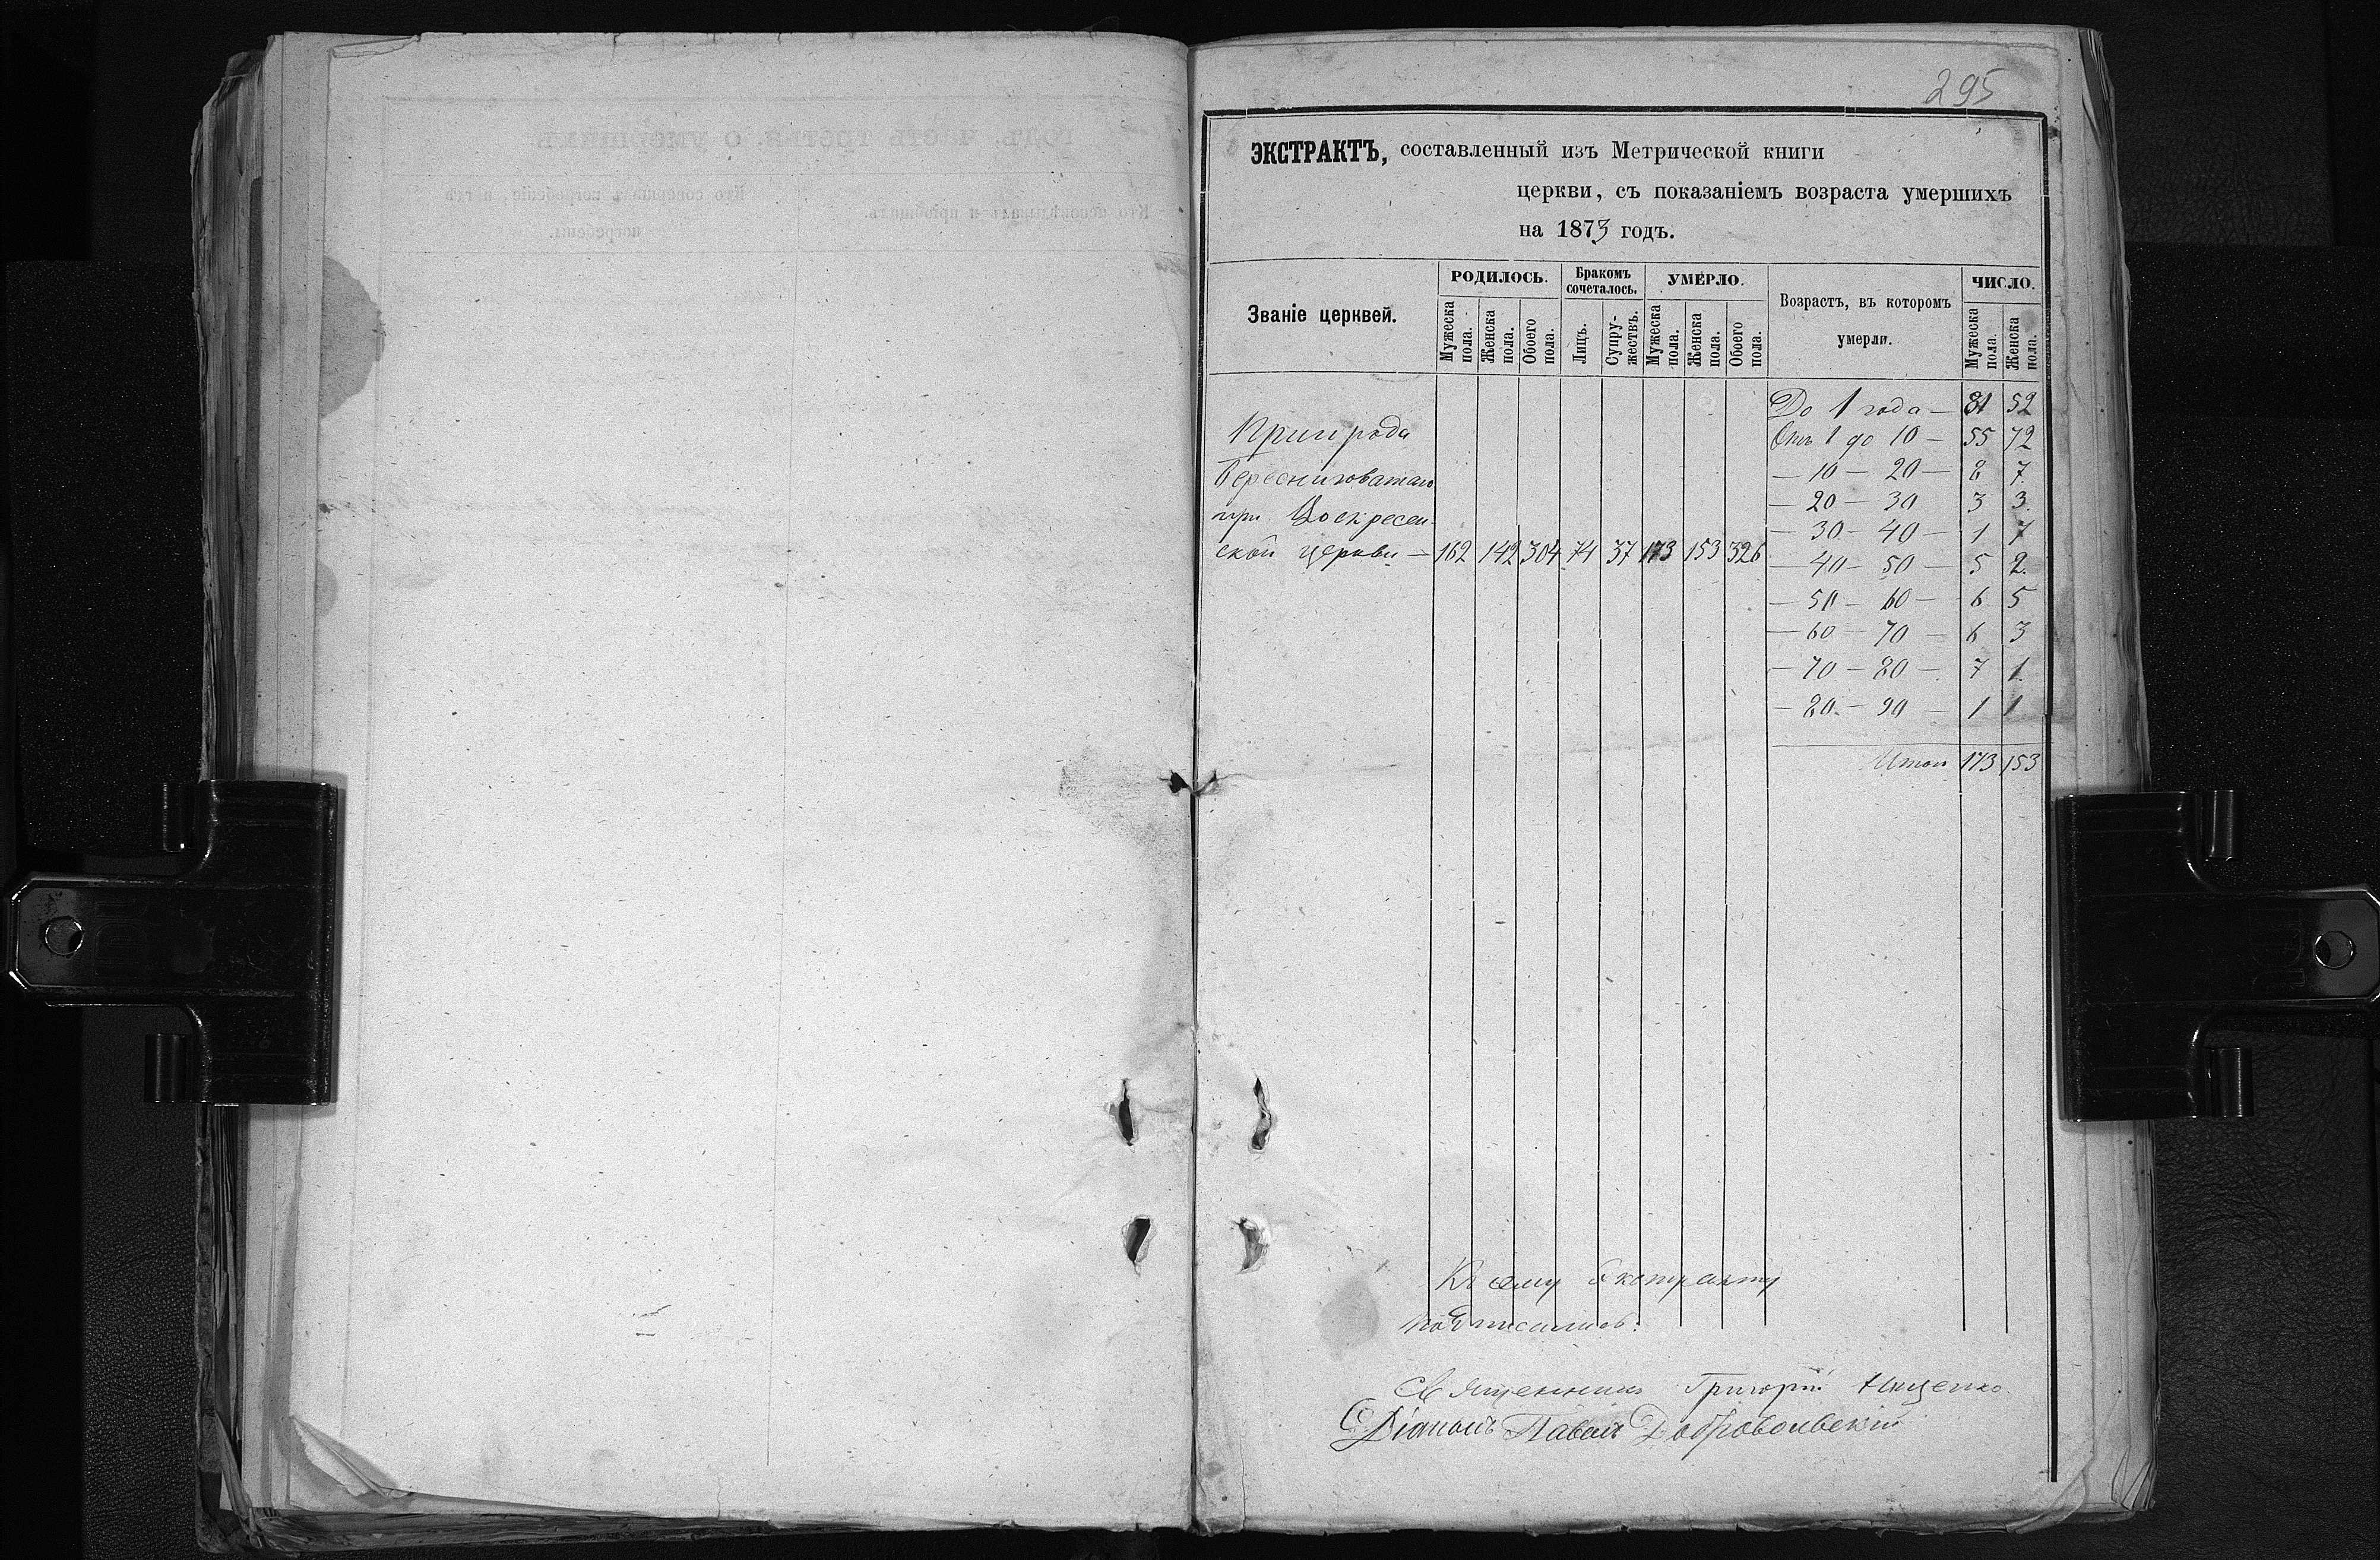 295
ЭКСТРАКТЪ, составленный изъ Метрической книги
церкви, съ показаніемъ возраста умершихъ
на 1873 годъ.
Званіе церквей.
РОДИЛОСЬ.
Мужеска пола.
Женска пола.
Обоего пола.
Бракомъ сочеталось.
Лицъ.
Супружествъ.
УМЕРЛО.
Мужеска пола.
Женска пола.
Обоего пола.
Возрастъ, въ которомъ
умерли.
ЧИСЛО.
Мужеска пола.
Женска пола.
Пригорода
Бересниговатаго
при Воскресен-
ской церкви — 162 142 304 74 37 173 153 326
До 1 года — 81 52
Отъ 1 до 10 — 55 72
— 10 — 20 — 8 7
— 20 — 30 3 3.
— 30 — 40 — 1 7
— 40 — 50 — 5 2.
— 50 — 60 — 6 5
— 60 — 70 — 6 3
— 70 — 80 — 7 1.
— 80 — 90 — 1 1
Итого 173 153
Къ сему Экстракту
подписались:
Священникъ Григорій
Діаконъ Павелъ Добровольскій
ГОДЪ, ЧАСТЬ ТРЕТЬЯ, О УМЕРШИХЪ
Кто исповѣдывалъ и пріобщалъ.
Кто совершалъ погребеніе, и гдѣ
погребены.